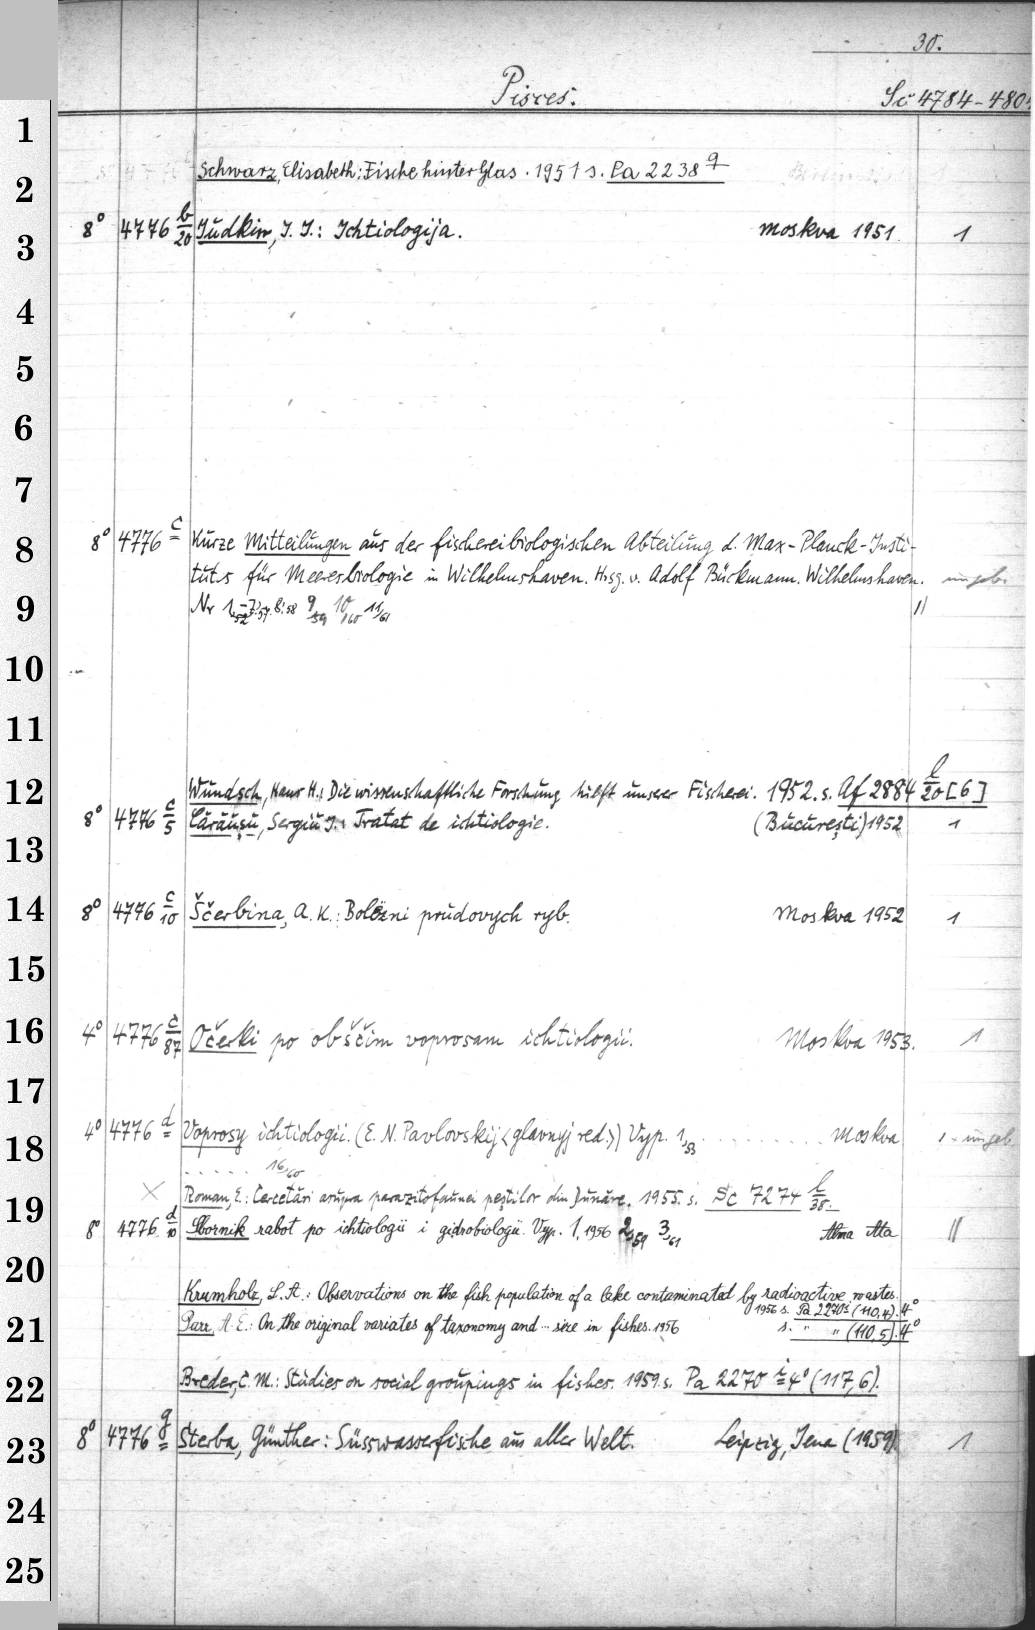 30.
Pisces.
Sc 4784-480
1
2
3
4
5
6
7
8
9
10
11
12
13
14
15
16
17
18
19
20
21
22
23
24
25
Schwarz, Elisabeth: Fische hinter Glas. 1951 s. Pa 2238 q
8° 4776 b/20 Judkin, I. I.: Ichtiologija. Moskva 1951. 1
8° 4776 c Kurze Mitteilungen aus der fischereibiologischen Abteilung d. Max-Planck-Insti-
tuts für Meeresbiologie in Wilhelmshaven. Hrsg. v. Adolf Bückmann. Wilhelmshaven. ungeb.
Nr 1/52-7/57. 8/58 9/59 10/60 11/61 II
Wundsch, Hans H.: Die wissenschaftliche Forschung hilft unserer Fischerei. 1952. s. Af 2884 l/20 [6]
8° 4776 c/5 Cărăuşu, Sergiu I.: Tratat de ichtiologie. (Bucureşti) 1952 1
8° 4776 c/10 Ščerbina, A. K.: Bolezni prudovych ryb. Moskva 1952 1
4° 4776 c/87 Očerki po obščim voprosam ichtiologii. Moskva 1953. 1
4° 4776 d Voprosy ichtiologii. (E. N. Pavlovskij <glavnyj red.>) Vyp. 1/53 . . . . . . . . . Moskva 1 - ungeb
. . . . . 16/60
× Roman, E.: Cercetări asupra parazitofaunei peştilor din Dunăre. 1955. s. Sc 7274 h/38.
8° 4776 d/10 Sbornik rabot po ichtiologii i gidrobiologii. Vyp. 1, 1956 2/59 3/61 Alma Ata II
Krumholz, L. A.: Observations on the fish population of a lake contaminated by radioactive wastes.
1956 s. Pa 2270 i (110,4). 4°
Parr, A. E.: On the original variates of taxonomy and ... size in fishes. 1956 s. " " (110,5). 4°
Breder, C. M.: Studies on social groupings in fishes. 1959. s. Pa 2270 i 4° (117,6).
8° 4776 g Sterba, Günther: Süsswasserfische aus aller Welt. Leipzig, Jena (1959) 1